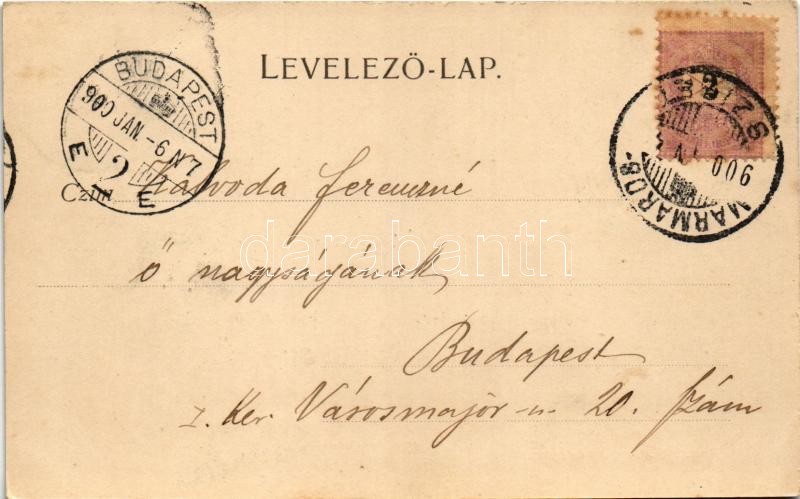 LEVELEZŐ-LAP.
BUDAPEST
900 JAN. -6 N 7
E 2 E
MÁRMAROS-SZIGET
900
2
Czím
Salvoda Ferenczné
ő nagyságának
Budapest
I. Ker. Városmajor-u. 20. szám
darabanth